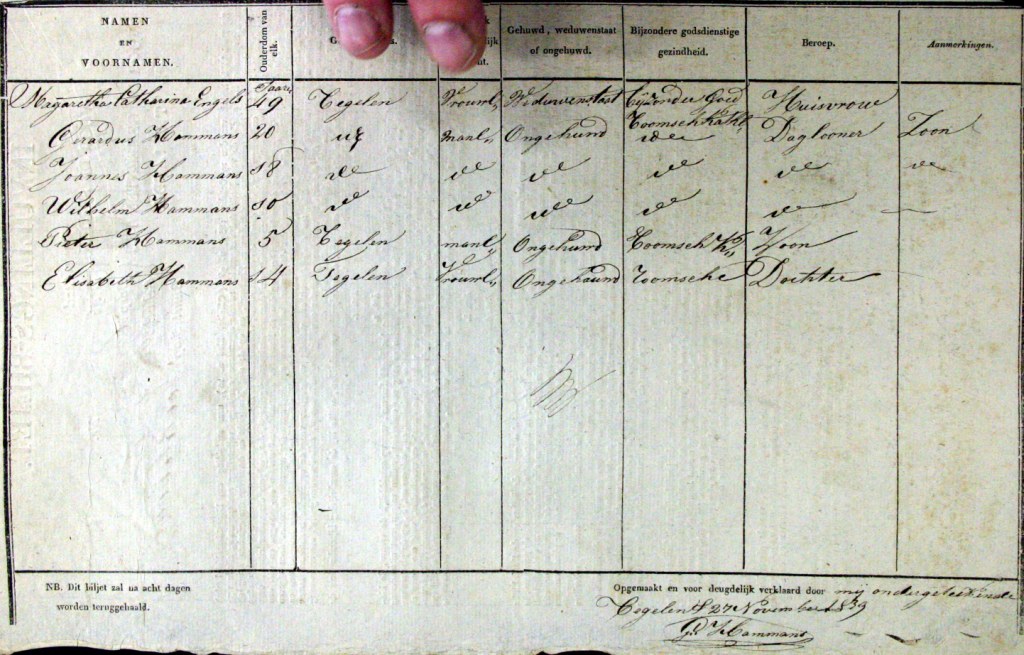 NAMEN
EN
VOORNAMEN.
Ouderdom van
elk.
Gehuwd, weduwenstaat
of ongehuwd.
Bijzondere godsdienstige
gezindheid.
Beroep.
Aanmerkingen.
Jaare
Margaretha Catharina Engels 49 Tegelen Vrouwl, Weduwenstaat bijzonder Goed Huisvrouw
Roomsch Kathl,
Gerardus Hammans 20 manl, Ongehuwd Daglooner Zoon
Joannes Hammans 18
Wilhelm Hammans 10
Pieter Hammans 5 Tegelen manl, Ongehuwd Roomsch K, Zoon
Elisabeth Hammans 14 Tegelen Vrouwl, Ongehuwd roomsche Dochter
NB. Dit biljet zal na acht dagen
worden teruggehaald.
Opgemaakt en voor deugdelijk verklaard door mij ondergeteekende
Tegelen 27 November 1839
Gd Hammans